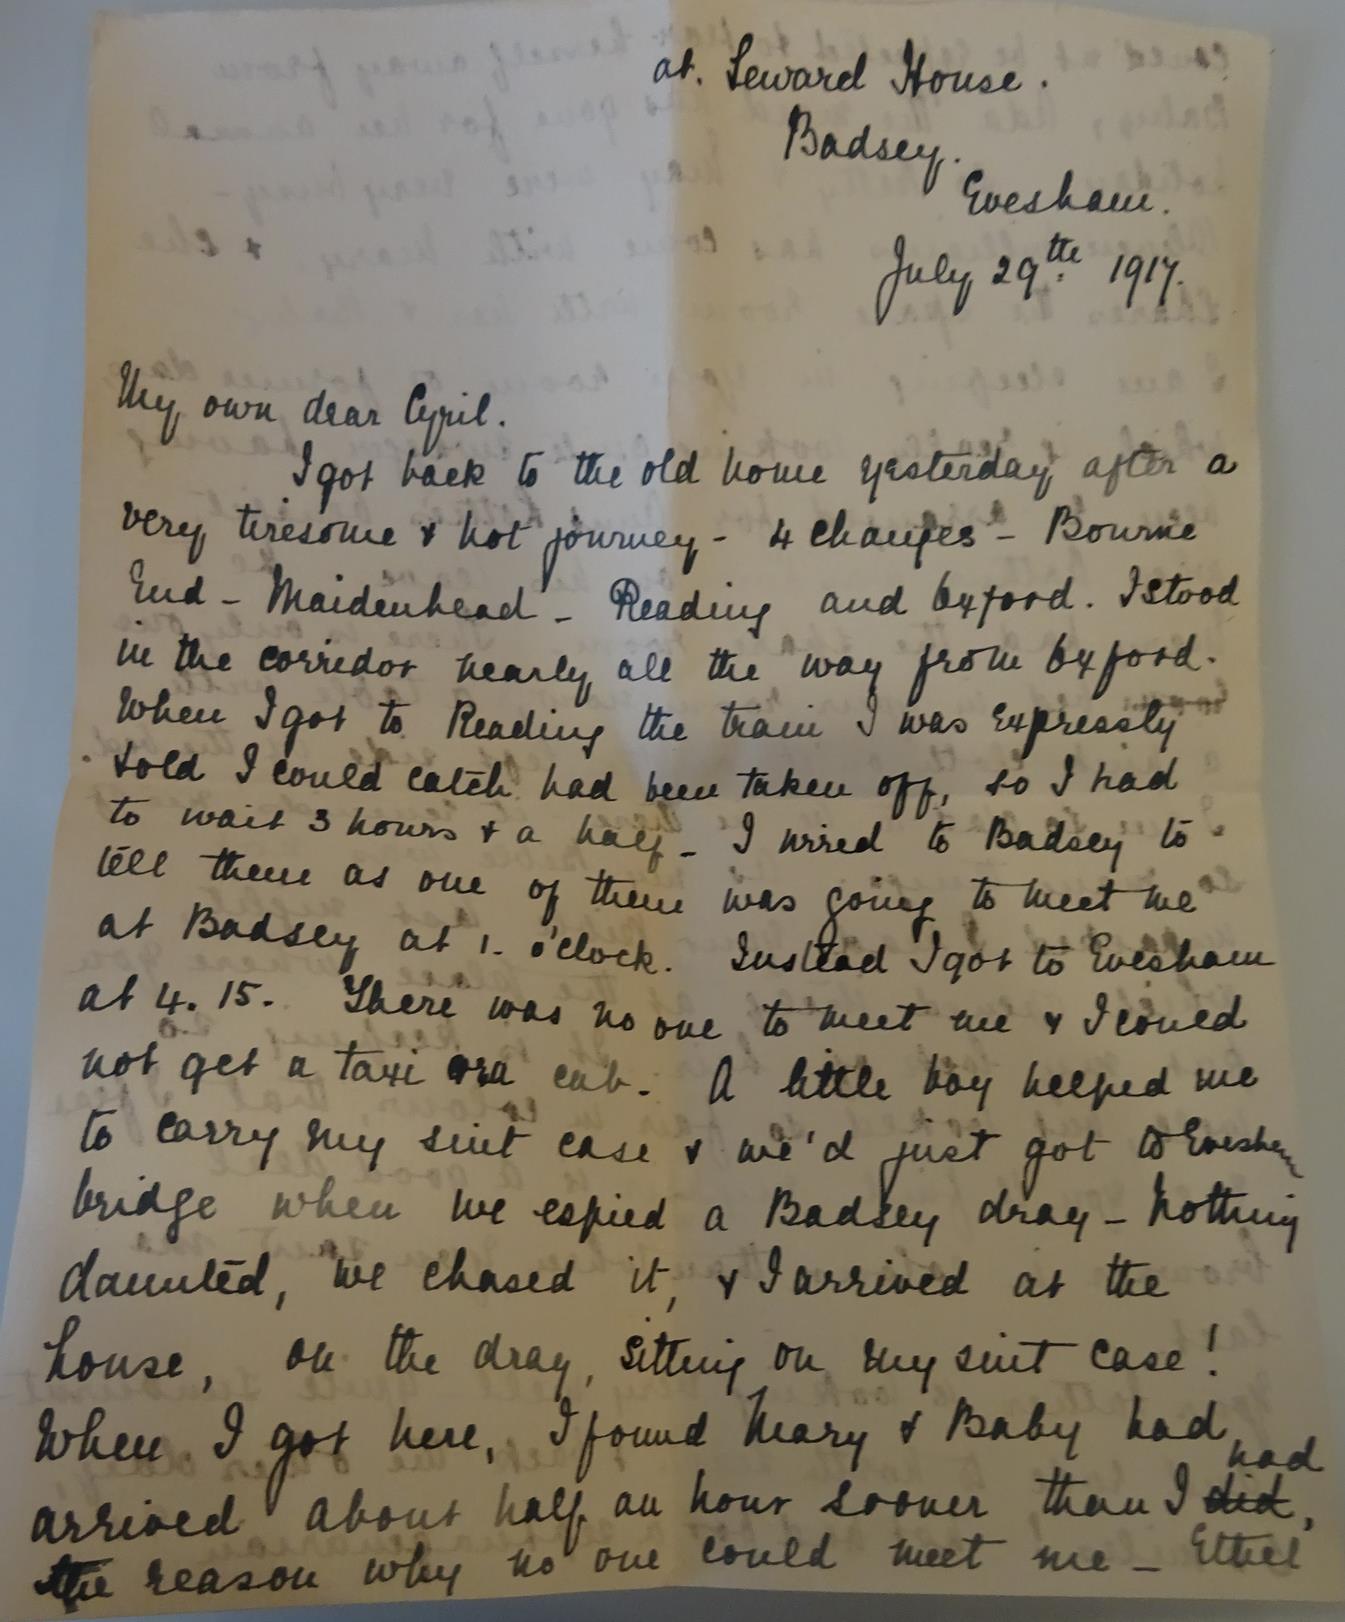 at. Seward House.
Badsey.
Evesham.
July 29th 1917.
My own dear Cyril.
I got back to the old home yesterday after a
very tiresome & hot journey - 4 changes - Bourne
End - Maidenhead - Reading and Oxford. I stood
in the corridor nearly all the way from Oxford.
When I got to Reading the train I was expressly
told I could catch had been taken off, so I had
to wait 3 hours & a half - I wired to Badsey to
tell them as one of them was going to meet me
at Badsey at 1. o'clock. Instead I got to Evesham
at 4.15. There was no one to meet me & I could
not get a taxi or a cab. A little boy helped me
to carry my suit case & we'd just got to Evesham
bridge when we espied a Badsey dray - Nothing
daunted, we chased it, & I arrived at the
house, on the dray, sitting on my suit case!
When I got here, I found Mary & Baby had
arrived about half an hour sooner than I did had,
the reason why no one could meet me - Ethel